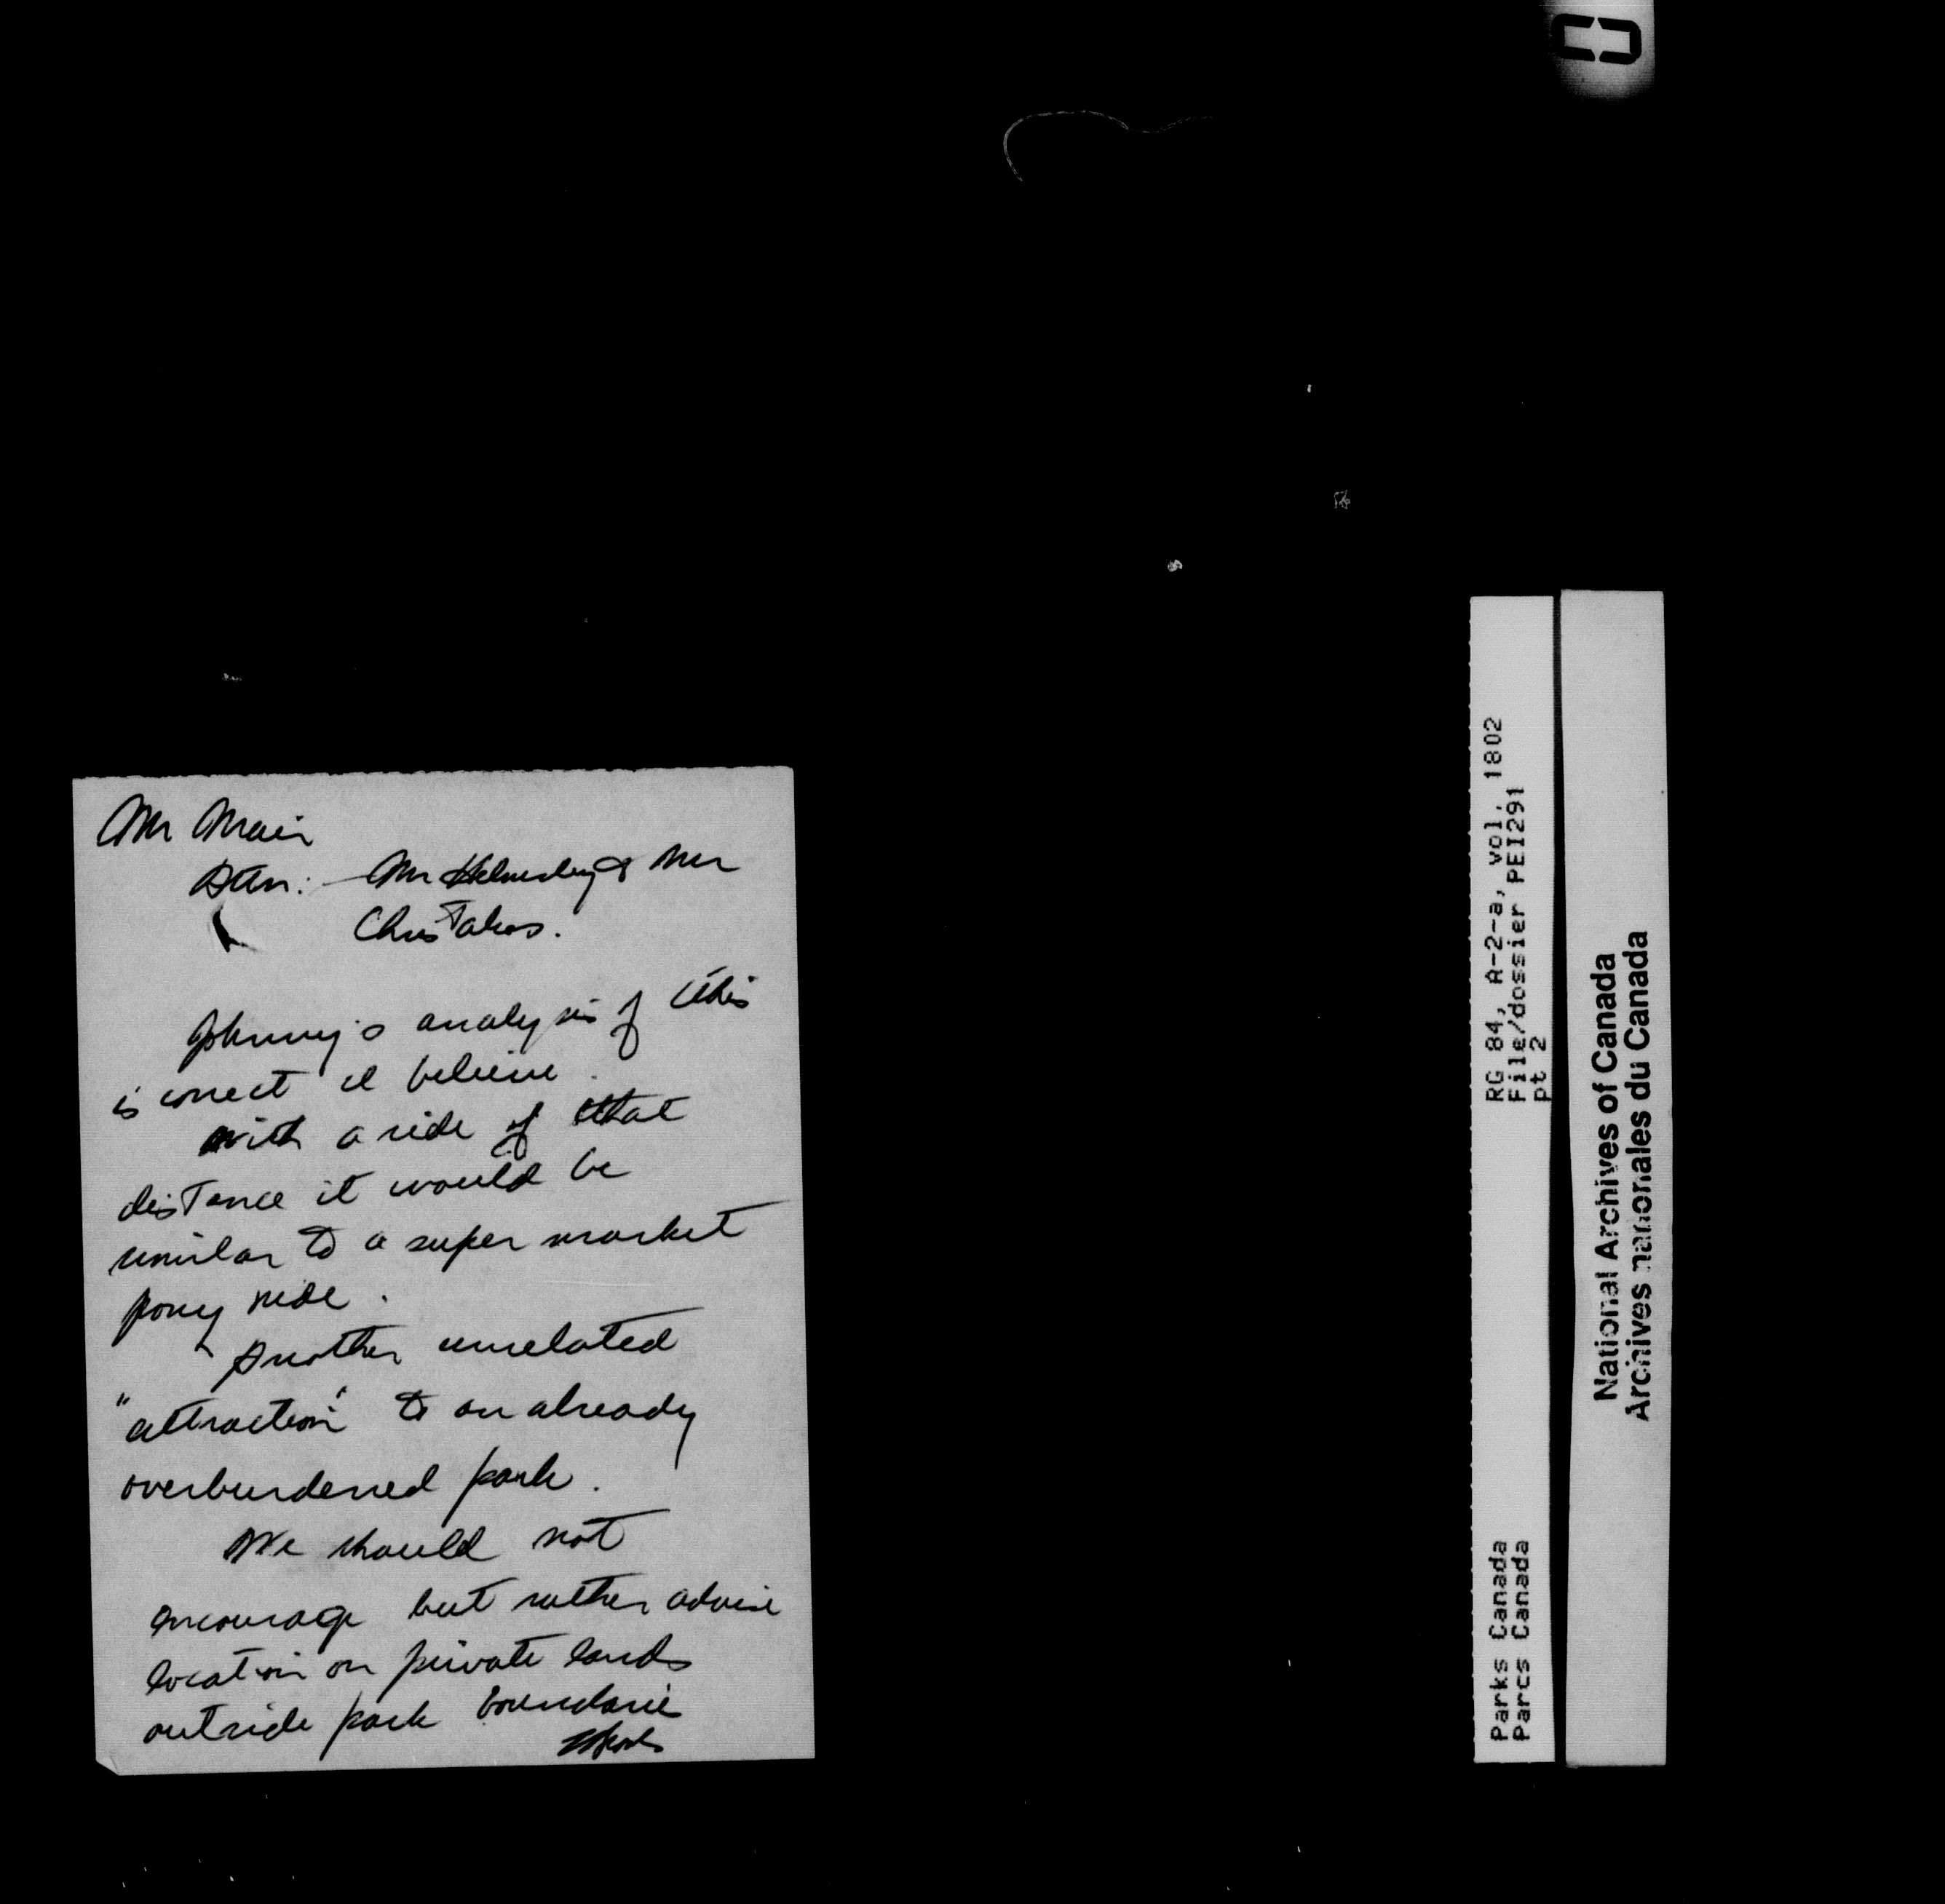 Mr Mair
Attn: - Mr Helmsley & Mr
Christakos.
Johnny's analysis of this
is correct I believe.
With a ride of that
distance it would be
similar to a super market
pony ride.
Another unrelated
"attraction" to an already
overburdened park.
We should not
encourage but rather advise
location on private lands
outside park boundaries
RG 84, A-2-a, vol. 1802
File/dossier PEI291
pt 2
Parks Canada
Parcs Canada
National Archives of Canada
Archives nationales du Canada